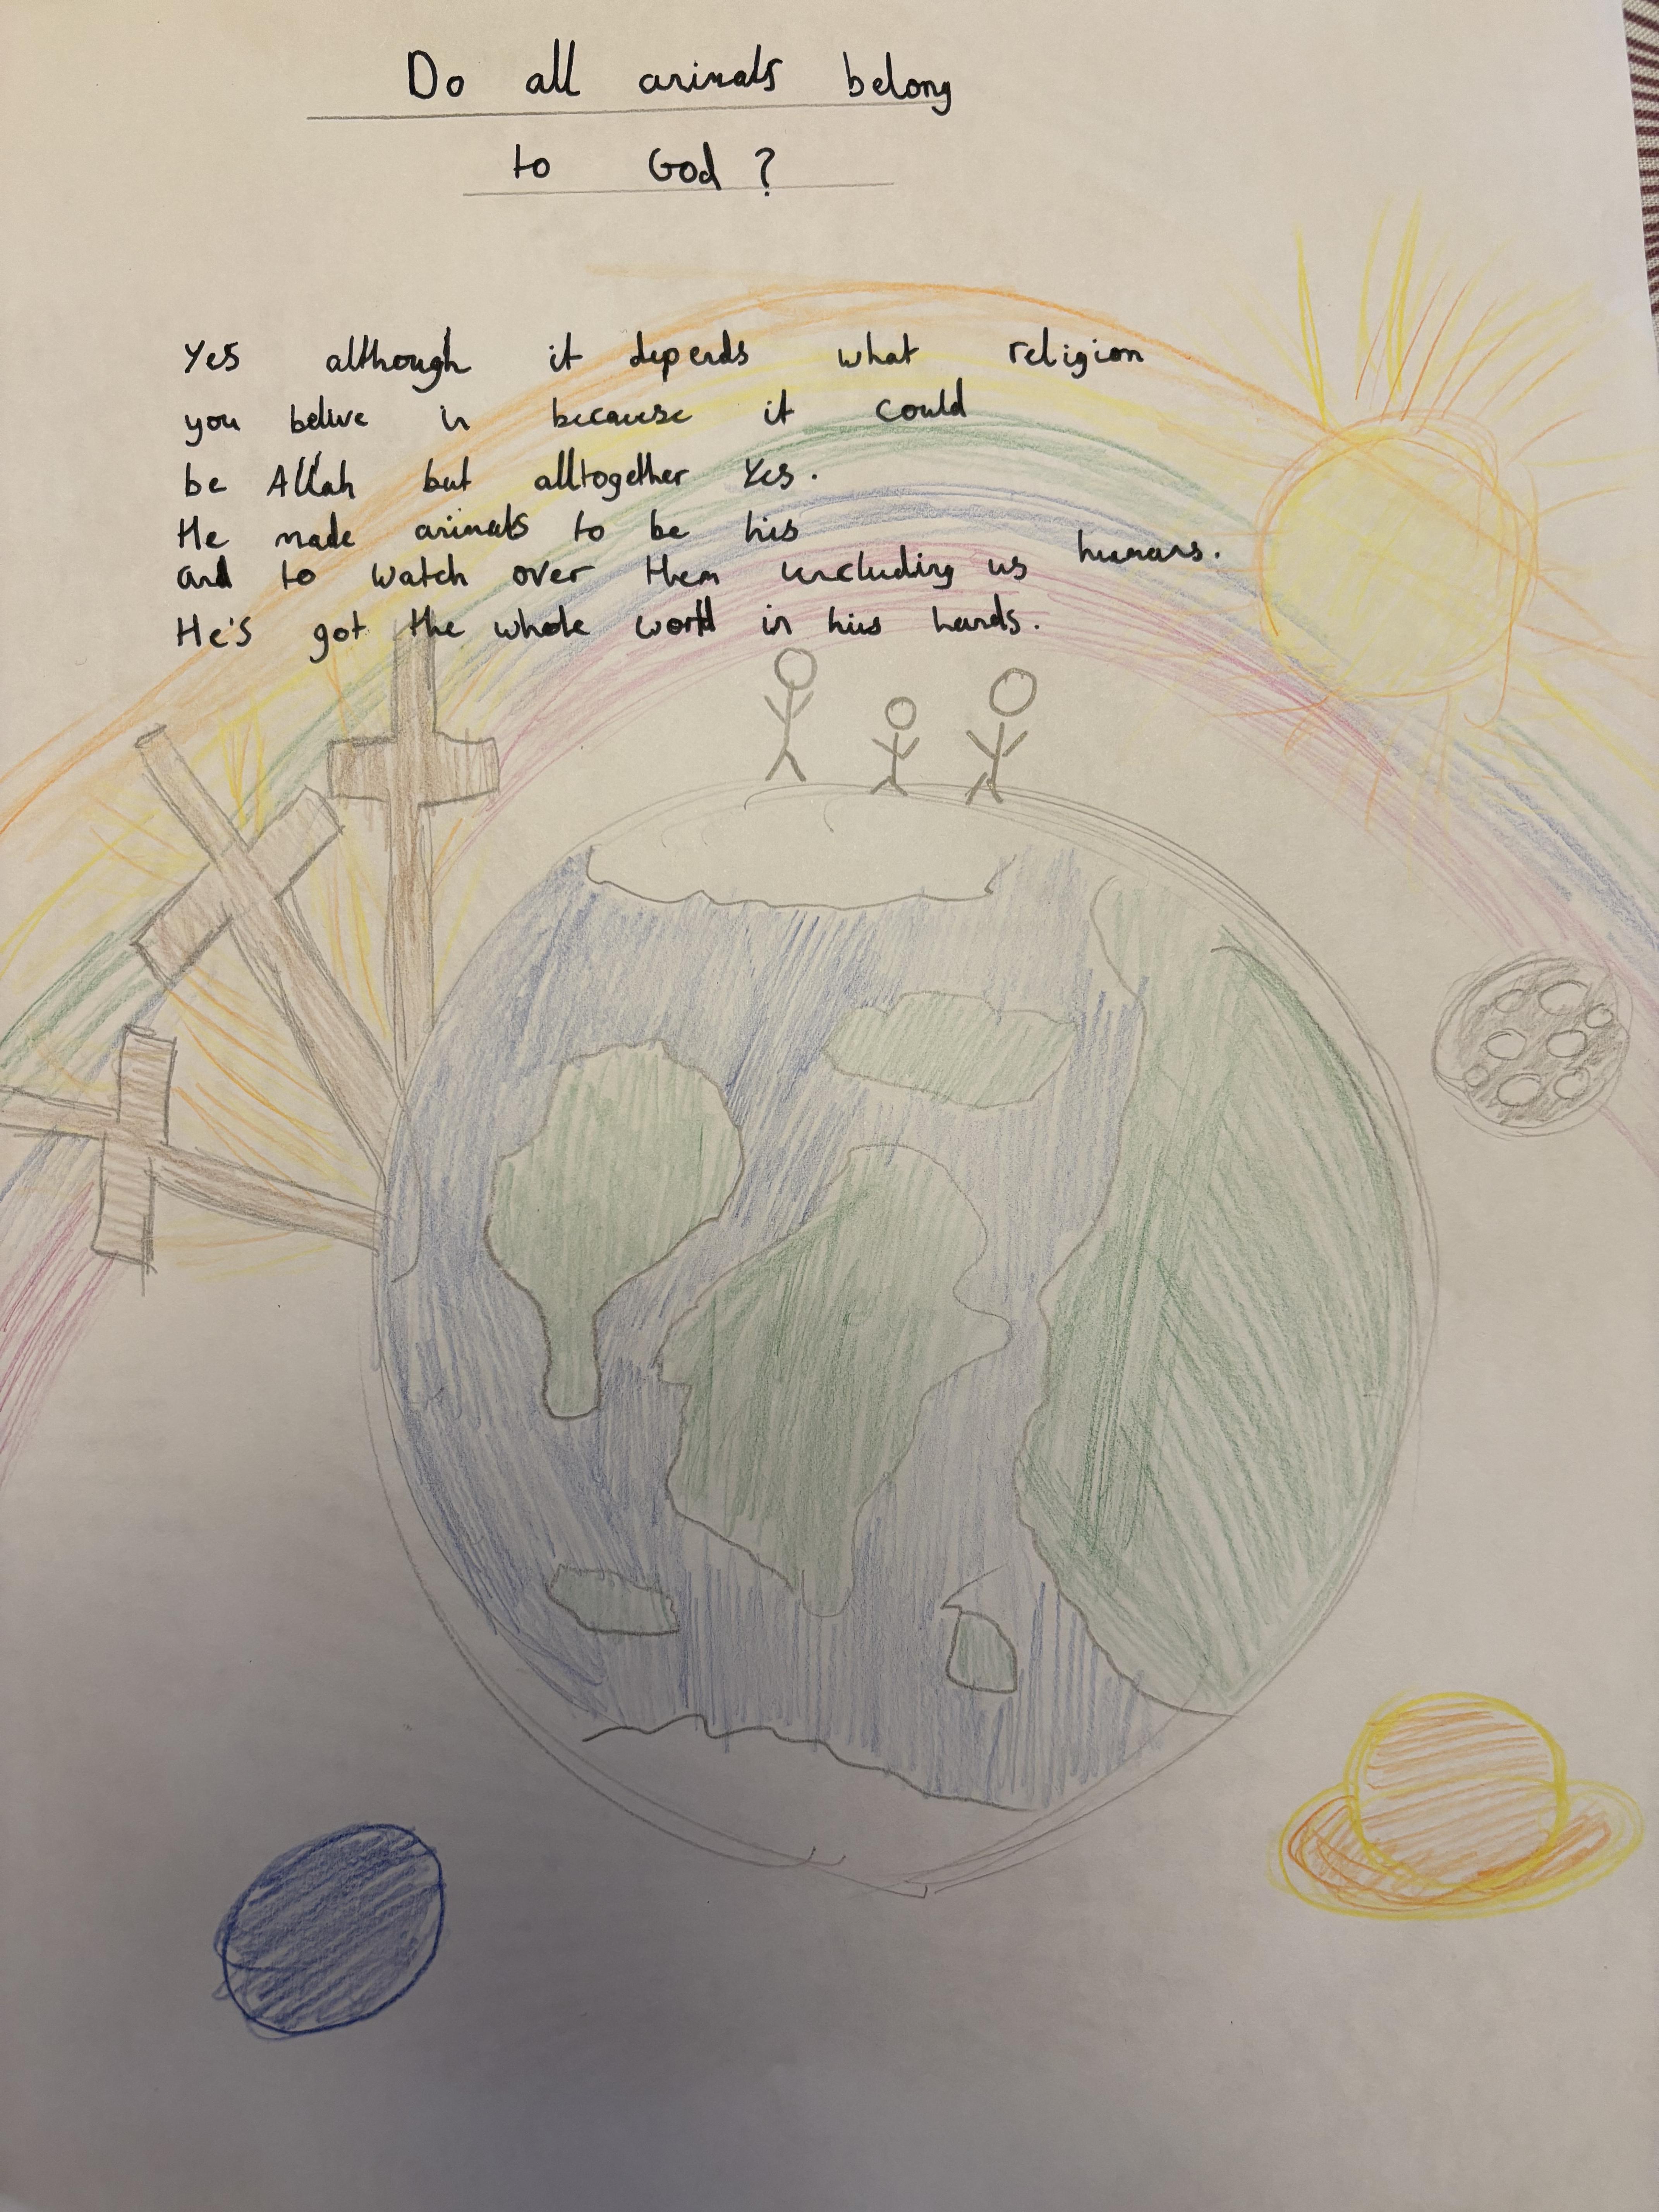 Do all animals belong
to God?
Yes although it depends what religion
you belive in because it could
be Allah but alltogether Yes.
He made animals to be his
and to watch over them including us humans.
He's got the whole world in his hands.